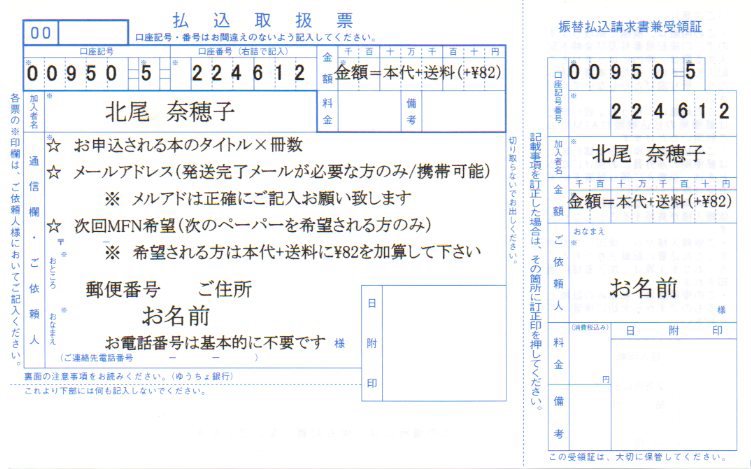 払込取扱票
00
口座記号・番号はお間違えのないよう記入してください。
口座記号
口座番号 (右詰で記入)
00950-5-224612
金額
千百十万千百十円
金額=本代+送料(+¥82)
加入者名
北尾 奈穂子
料金
備考
各票の※印欄は、ご依頼人様においてご記入ください。
通信欄・ご依頼人
☆ お申込される本のタイトル×冊数
☆ メールアドレス(発送完了メールが必要な方のみ/携帯可能)
※ メルアドは正確にご記入お願い致します
☆ 次回MFN希望(次のペーパーを希望される方のみ)
※ 希望される方は本代+送料に¥82を加算して下さい
〒
おところ
郵便番号 ご住所
おなまえ
お名前
お電話番号は基本的に不要です 様
(ご連絡先電話番号 － － )
日附印
裏面の注意事項をお読みください。(ゆうちょ銀行)
これより下部には何も記入しないでください。
切り取らないでお出しください。
記載事項を訂正した場合は、その箇所に訂正印を押してください。
振替払込請求書兼受領証
口座記号番号
00950-5
224612
加入者名
北尾 奈穂子
金額
千百十万千百十円
金額=本代+送料(+¥82)
ご依頼人
おなまえ
お名前
様
料金
(消費税込み)
円
日附印
備考
この受領証は、大切に保管してください。